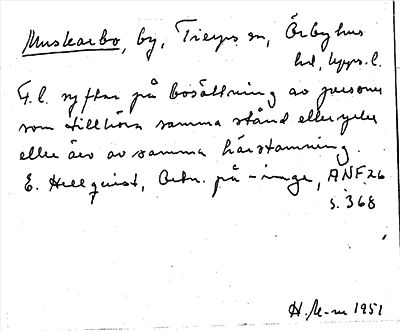 Muskarbo, by, Tierps sn, Örbyhus
hd, Upps. l.
F. l. syftar på bosättning av personer
som tillhöra samma stånd eller yrke
eller äro av samma härstamning.
E. Hellquist, Ortn. på -inge, ANF 26
s. 368
H. 1951